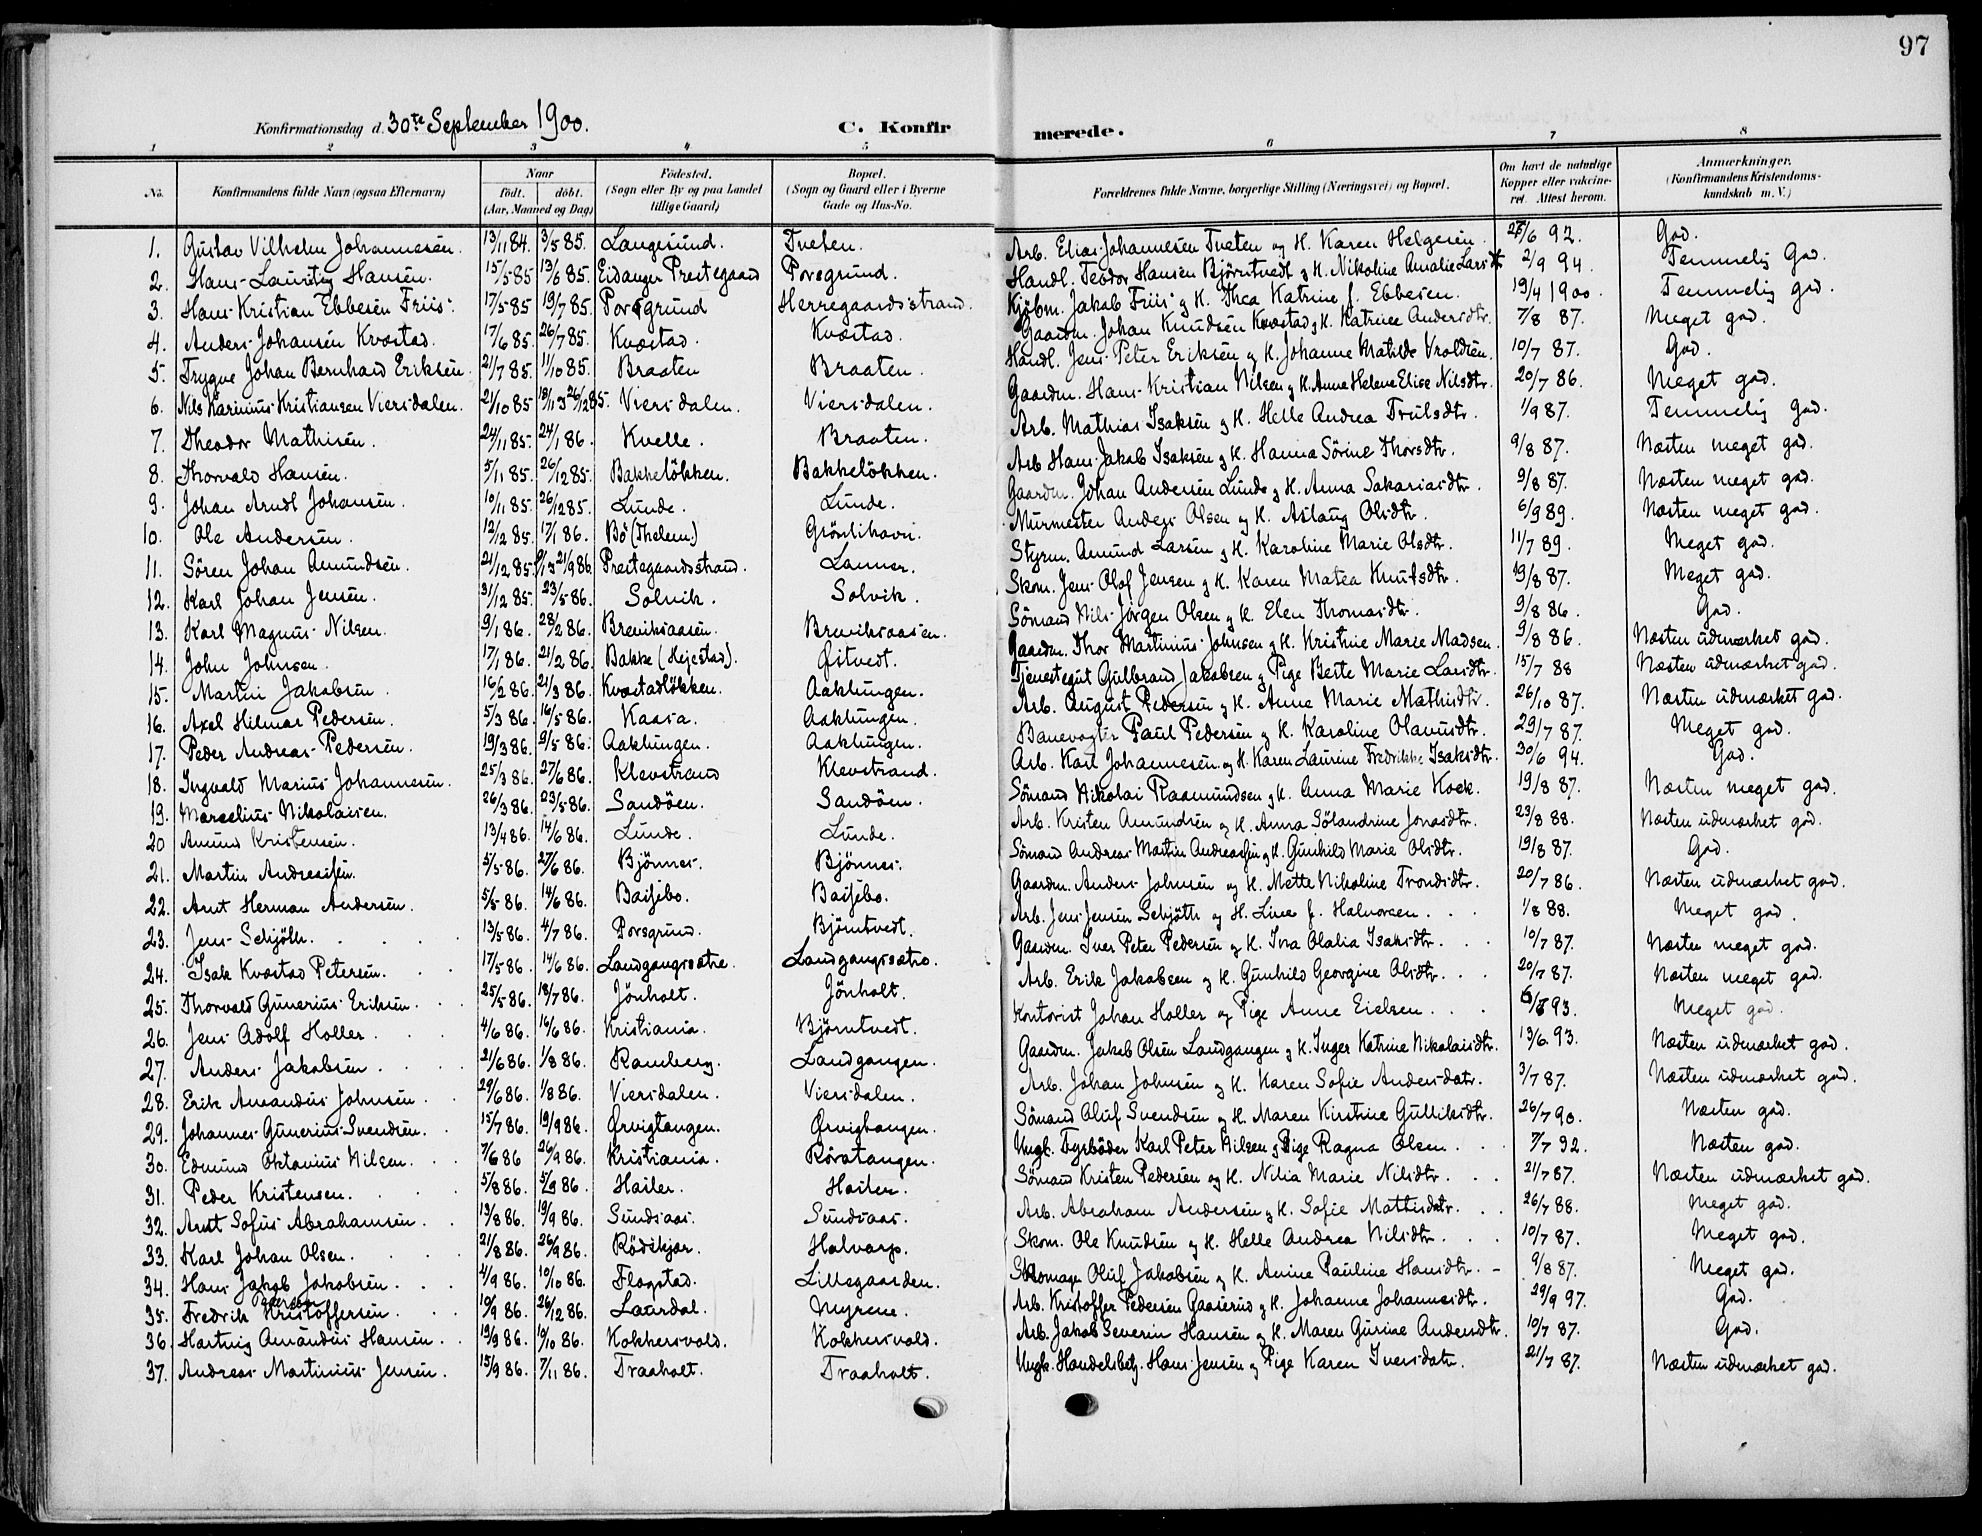 97
Konfirmationsdag d. 30te September 1900. C. Konfirmerede.
1 2 3 4 5 6 7 8
No. Konfirmandens fulde Navn (ogsaa Efternavn) Naar født. døbt. (Aar, Maaned og Dag) Fødested. (Sogn eller By og paa Landet tillige Gaard) Bopæl. (Sogn og Gaard eller i Byerne Gade og Hus-No. Forældrenes fulde Navne, borgerlige Stilling (Næringsvei) og Bopæl. Om havt de naturlige Kopper eller vakcineret. Attest herom. Anmærkninger. (Konfirmandens Kristendomskundskab m. V.)
1. Gustav Vilhelm Johannesen. 13/11 84. 3/5 85. Langesund. Tveten. Arb. Elias Johannesen Tveten og H. Karen Helgesen. /6 92. God.
2. Hans Lauritz Hansen. 15/5 85 13/6 85. Eidanger Prestegaard Porsgrund. Handl. Teodor Hansen Björntvedt og H. Nikoline Amalie Larsdt 2/9 94. Temmelig God.
3. Hans Kristian Ebbesen Friis. 17/5 85 19/7 85. Porsgrund Herregaardsstrand. Kjöbm. Jakob Friis og H. Thea Katrine f. Ebbesen. 19/4 1900. Temmelig god.
4. Anders Johansen Kvestad. 17/6 85. 26/7 85. Kvæstad. Kvæstad. Gaardm. Johan Knudsen Kvæstad og H. Katrine Andersdtr. 7/8 87. Meget god.
5. Trygve Johan Bernhard Eriksen. 21/7 85. 11/10 85. Braaten Braaten. Handl. Jens Peter Eriksen og H. Johanne Matilde Vroldsen. 10/7 87. God.
6. Nils Karinius Kristiansen Viersdalen. 21/10 85 26/12 85. Viersdalen. Viersdalen. Gaardm. Hans Kristian Nilsen og H. Anne Helene Elise Nilsdtr. 20/7 86. Meget god.
7. Theodor Mathisen. 24/11 85. 24/1 86. Kvelle. Braaten. Arb. Mathias Isaksen og H. Helle Andrea Trulsdtr. 1/9 87. Temmelig god.
8. Thorvald Hansen. 5/11 85. 26/12 85. Bakkelökken. Bakkelökken. Arb Hans Jakob Isaksen og H. Hanna Sörine Thorsdtr. 9/8 87. Næsten meget god.
9. Johan Arndt Johansen. 10/11 85. 26/12 85. Lunde. Lunde. Gaardm. Johan Andersen Lunde og H. Anna Sakariasdtr. 9/8 87. Næsten meget god.
10. Ole Andersen. 12/12 85. 17/1 86. Bö (Thelem.) Grönlihavn. Murmester Anders Olsen og H. Aslaug Olsdtr. 6/9 89. Næsten meget god.
11. Sören Johan Amundsen. 21/12 85. 21/9 86. Prestegaardsstrand. Lanner. Styrm. Amund Larsen og H. Karoline Marie Olsdtr. 11/7 89. Meget god.
12. Karl Johan Jensen. 31/12 85. 23/5 86. Solvik. Solvik. Skom. Jens Olaf Jensen og H. Karen Matea Knutsdtr. 19/8 87. Meget god.
13. Karl Magnus Nilsen. 9/1 86. 28/2 86. Breviksaasen. Breviksaasen. Sömand Nils Jörgen Olsen og H. Elen Thomasdtr. 9/8 86. God.
14. John Johnsen. 17/1 86. 21/2 86. Bakke (Hejestad). Østvedt. Gaardm. Thor Martinius Johnsen og H. Kristine Marie Madsen. 9/8 86. Næsten udmærket god.
15. Martin Jakobsen. 16/2 86. 21/3 86. Kvæstadlökken. Aaklungen. Tjenestegut Gulbrand Jakobsen og Pige Berte Marie Larsdtr. 15/7 88 Næsten udmærket god.
16. Axel Hilmar Pedersen. 5/3 86. 16/5 86. Kaasa. Aaklungen. Arb. August Pedersen og H. Anne Marie Mathisdtr. 26/10 87. Næsten udmærket god.
17. Peder Andreas Pedersen. 19/3 86. 9/5 86. Aaklungen. Aaklungen. Banevogter Paul Pedersen og H. Karoline Olavusdtr. 29/7 87. Meget god.
18. Ingvald Marius Johannesen. 25/3 86. 27/6 86. Klevstrand Klevstrand. Arb. Karl Johannesen og H. Karen Laurine Fredrikke Isaksdtr. 30/6 94. God.
19. Marcelius Nikolaisen. 26/3 86. 23/5 86. Sandöen. Sandöen. Sömand Nikolai Rasmundsen og H. Anna Marie Kock. 19/8 87. Næsten meget god.
20 Amund Kristensen. 13/4 86. 14/6 86. Lunde. Lunde. Arb. Kristen Amundsen og H. Anna Sölandrine Jonasdtr. 23/8 88. Næsten udmærket god.
21. Martin Andreassen. 5/5 86. 27/6 86. Björnnes. Björnnes. Sömand Andreas Martin Andreassen og H. Gunhild Marie Olsdtr. 19/8 87. God.
22. Arnt Herman Andersen. 5/5 86. 14/6 86. Basjebo. Basjebo. Gaardm. Anders Johnsen og H. Mette Nikoline Trondsdtr. 20/7 86. Næsten udmærket god.
23. Jens Schjöth. 13/5 86. 4/7 86. Porsgrund. Björntvedt. Arb. Jens Jensen Schjöth og H. Line f. Halvorsen. 1/8 88. Meget god.
24. Isak Kvæstad Petersen. 17/5 86. 14/6 86. Landgangsætre. Landgangsætre. Gaardm. Iver Peter Pedersen og H. Ina Olalia Isaksdtr. 10/7 87. Næsten meget god.
25. Thorvald Gunerius Eriksen. 25/5 86. 18/7 86. Jönholt. Jönholt. Arb. Erik Jakobsen og H. Gunhild Georgine Olsdtr. 20/7 87. Næsten meget god.
26. Jens Adolf Holler. 4/6 86. 16/6 86. Kristiania. Björntvedt. Kontorist Johan Holler og Pige Anne Eielsen. 93. Meget god.
27. Anders Jakobsen. 21/6 86. 1/8 86. Ramberg. Landgangen. Gaardm. Jakob Olsen Landgangen og H. Inger Katrine Nikolaisdtr. 13/6 93. Næsten udmærket god.
28. Erik Amandus Johnsen. 29/6 86. 1/8 86. Viersdalen. Viersdalen. Arb. Johan Johnsen og H. Karen Sofie Andersdatr. 3/7 87. Næsten udmærket god.
29. Johannes Gunerius Svendsen. 15/7 86. 19/9 86. Ørvigtangen. Ørvigtangen. Sömand Oluf Svendsen og H. Maren Kirstine Gulliksdtr. 26/7 90. Næsten god.
30. Edmund Oktavius Nilsen. 7/6 86 26/9 86. Kristiania. Röratangen. Ungk. Fyrböder Karl Peter Nilsen og Pige Ragna Olsen. 7/7 92. Næsten god.
31. Peder Kristensen. 5/8 86. 5/9 86. Haslen. Haslen. Sömand Kristen Pedersen og H. Nilia Marie Nilsdtr. 21/7 87. Næsten udmærket god.
32. Arnt Sofus Abrahamsen. 13/8 86. 19/9 86. Sundsaas. Sundsaas. Arb. Abraham Andersen og H. Sofie Mathisdatr. 26/7 88. Meget god.
33. Karl Johan Olsen. 21/8 86. 26/9 86. Rödskjær. Halvarp. Skom. Ole Knudsen og H. Helle Andrea Nilsdtr. 10/7 87. Meget god.
34. Hans Jakob Jakobsen. 4/9 86. 10/10 86. Flogstad. Lillegaarden. Skomager Oluf Jakobsen og H. Anine Pauline Hansdtr. 9/8 87. Meget god.
35. Fredrik Kristoffersen. 10/9 86. 26/12 86. Laurdal. Myrene. Arb. Kristoffer Pedersen Gaaserud og H. Johanne Johannesdtr. 29/9 97. God.
36. Hartvig Amandus Hansen. 19/9 86. 19/10 86. Kokkersvold. Kokkersvold. Arb. Jakob Severin Hansen og H. Maren Gurine Andersdtr. 10/7 87. God.
37. Andreas Martinius Jensen. 15/9 86. 7/11 86. Traaholt. Traaholt. Ungk. Handelsbetj. Hans Jensen og Pige Karen Iversdatr. 21/7 87. Næsten udmærket god.